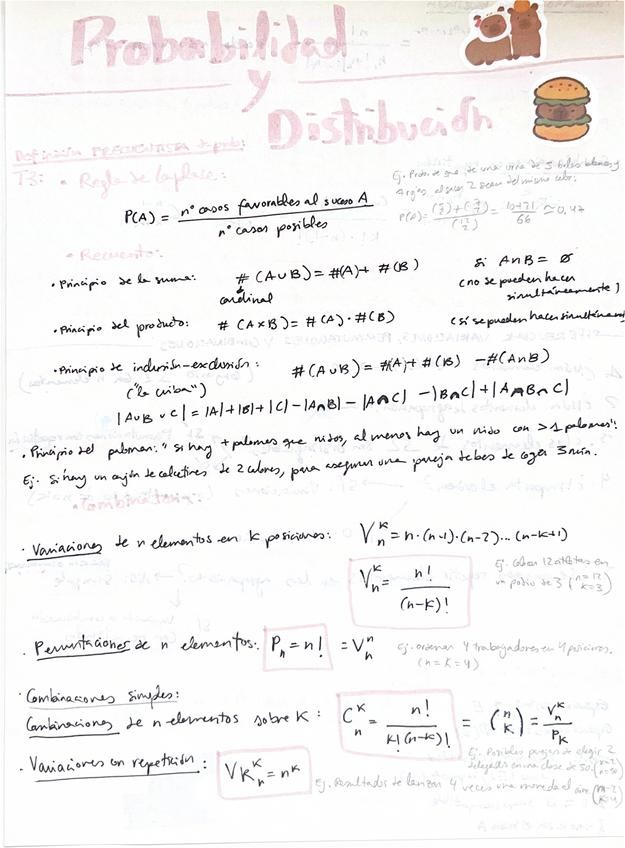 Probabilidad
y
Distribución
Definición FRECUENTISTA de prob:
T3: • Regla de Laplace:
Ej. Prob. de que de una urna de 5 bolas blancas y
4 rojas, al sacar 2 sean del mismo color:
P(A) = nº casos favorables al suceso A / nº casos posibles
• Recuento:
• Principio de la suma: # (A∪B) = #(A) + #(B) si A∩B = ∅
cardinal (no se pueden hacer simultáneamente)
• Principio del producto: # (A×B) = #(A) · #(B) (si se pueden hacer simultáneam
• Principio de inclusión-exclusión: #(A∪B) = #(A) + #(B) - #(A∩B)
("la criba")
|A∪B∪C| = |A|+|B|+|C| - |A∩B| - |A∩C| - |B∩C| + |A∩B∩C|
• Principio del palomar: "si hay + palomas que nidos, al menos hay un nido con >1 palomas".
Ej. Si hay un cajón de calcetines de 2 colores, para asegurar una pareja debes de coger 3 mín.
• Combinatoria:
• Variaciones de n elementos en K posiciones: V_n^K = n·(n-1)·(n-2)...(n-k+1)
V_n^K = n! / (n-K)!
Ej. Colocan 12 atletas en
un podio de 3 (n=12 K=3)
• Permutaciones de n elementos: P_n = n! = V_n^n Ej. ordenar 4 trabajadores en 4 posiciones.
(n=K=4)
• Combinaciones simples:
Combinaciones de n elementos sobre K: C_n^K = n! / K!(n-K)! = (n K) = V_n^K / P_K
Ej. Posibles parejas de elegir 2
delegados en una clase de 50
• Variaciones con repetición: VR_n^K = n^K
Ej. Resultados de lanzar 4 veces una moneda al aire (n=2 K=4)